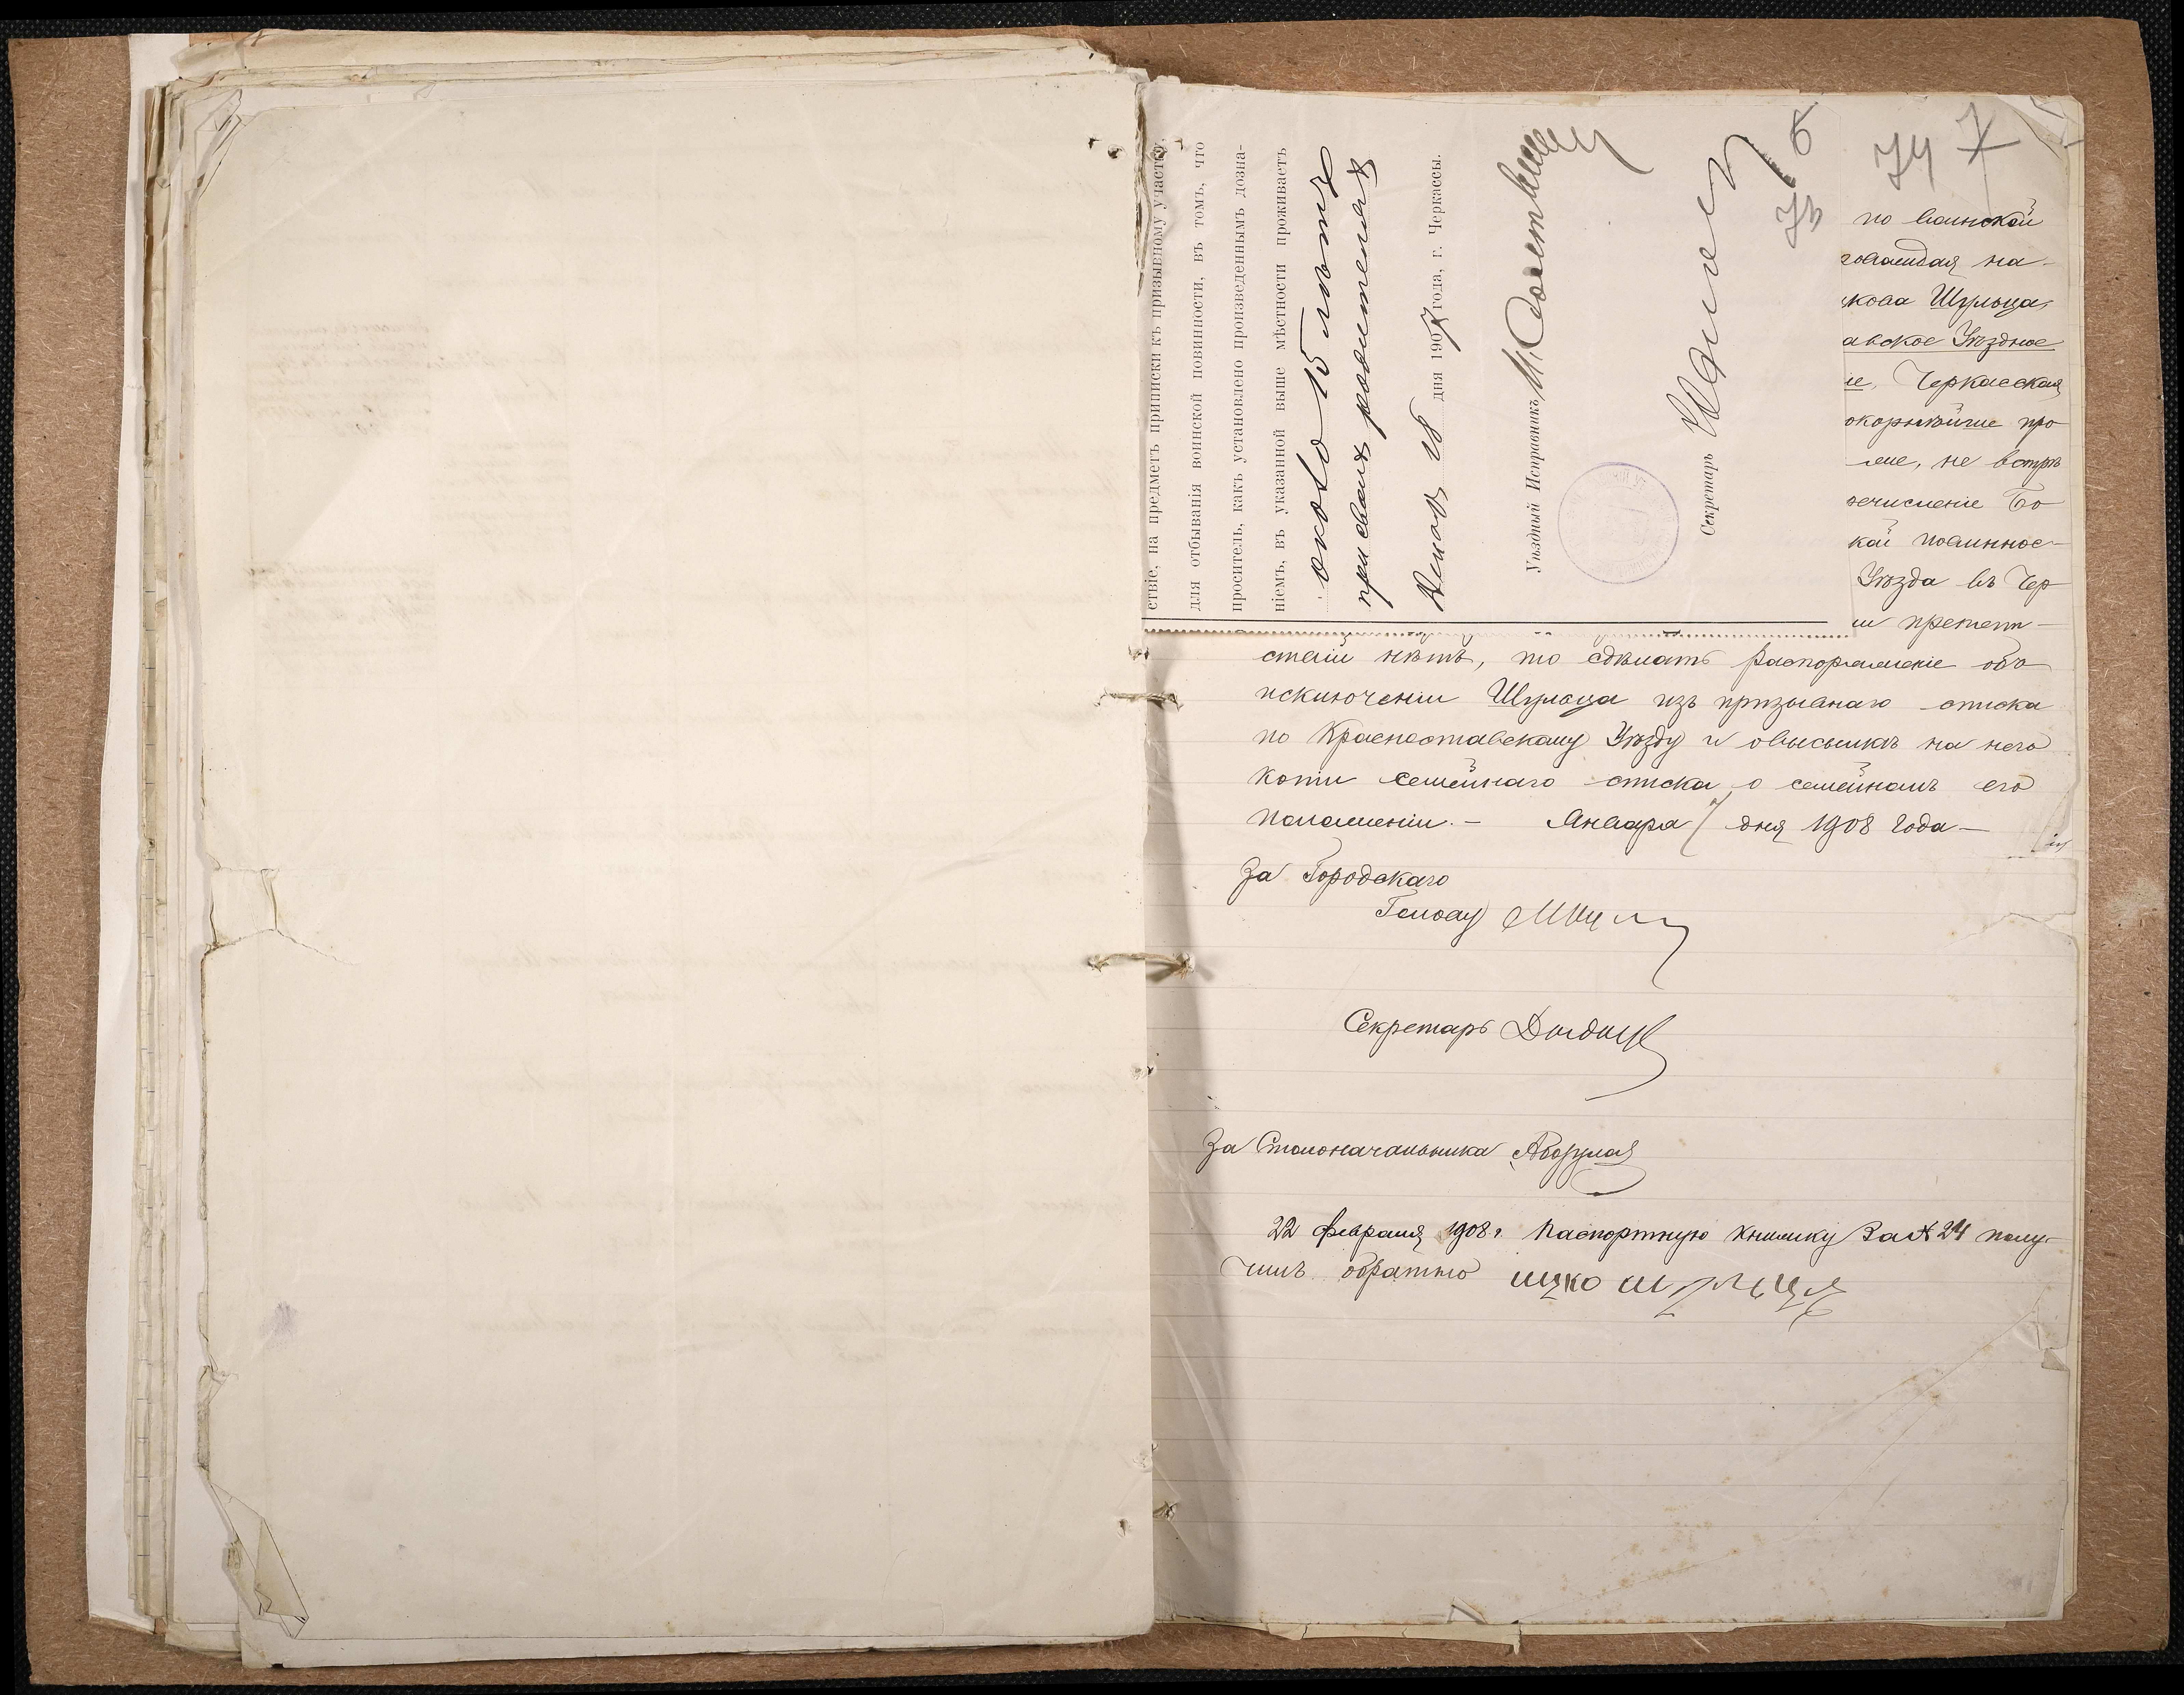 ствіе, на предметъ приписки къ призывному участку,
для отбыванія воинской повинности, въ томъ, что
проситель, какъ установлено произведеннымъ дозна-
ніемъ, въ указанной выше мѣстности проживаетъ
около 15 лѣтъ
при своихъ родителяхъ
18 дня 1907 года, г. Черкассы.
Уѣздный Исправникъ
Секретарь
6
74 7
по воинской
на-
кова Шульца,
авское Уѣздное
іе, Черкасская
окорнѣйше про
не встрѣ
речисленіе Бо
кой повиннос-
Уѣзда въ Чер
препят-
ствій нѣтъ, то сдѣлать распоряженіе объ
исключеніи Шульца изъ призывнаго списка
по Красноставскому Уѣзду и о высылкѣ на него
копіи семейнаго списка о семейномъ его
положеніи.- Января 7 дня 1908 года-
За Городского
Голову
Секретарь
За Столоначальника
22 февраля 1908 г. Паспортную книжку за № 24 полу-
чилъ обратно ицко шульцъ